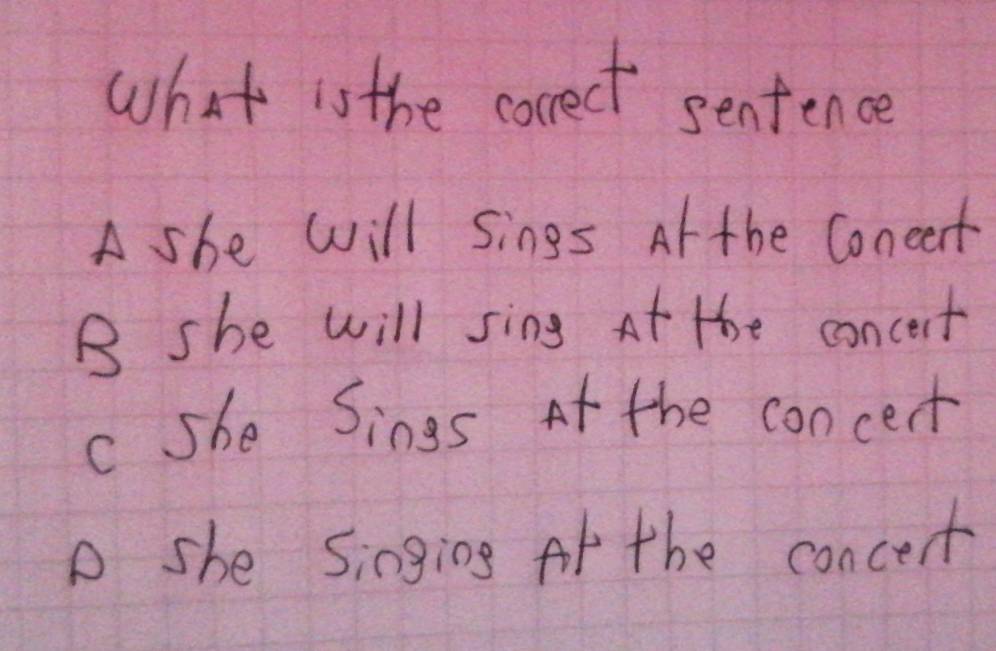 What is the correct sentence
A She will Sings At the Concert
B She will sing At the concert
C She Sings At the concert
D She Singing At the concert